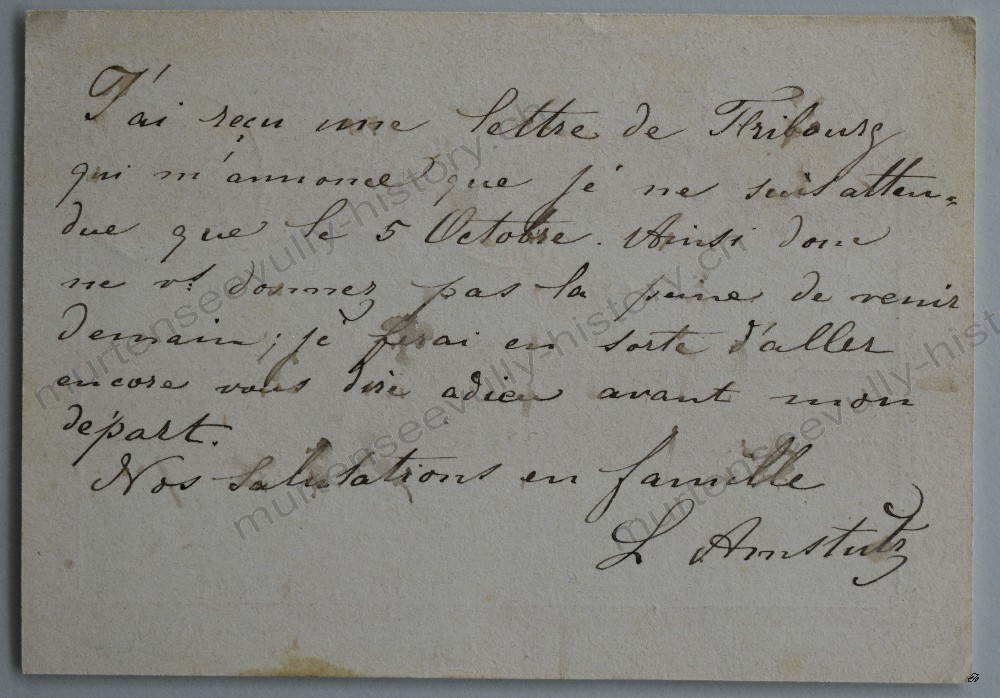 J'ai reçu une lettre de Fribourg
qui m'annonce que je ne suis atten=
due que le 5 Octobre. Ainsi donc
ne vs. donnez pas la peine de venir
demain; je ferai en sorte d'aller
encore vous dire adieu avant mon
départ.
Nos salutations en famille
L Amstutz
murtenseevully-history.ch
murtenseevully-history.ch
murtenseevully-history.ch